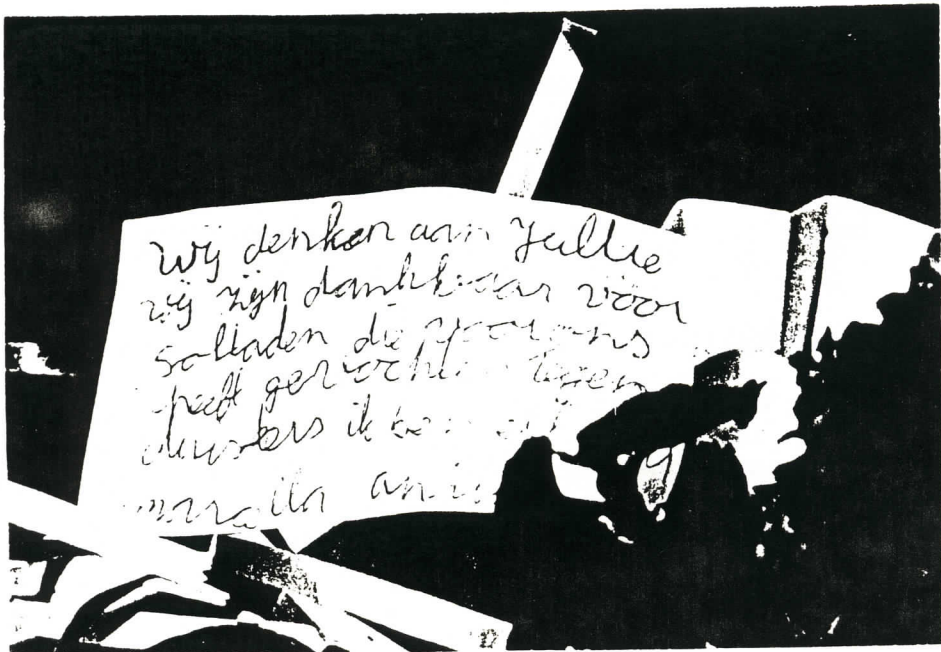 Wij denken aan Jullie
wij zijn dankbaar vöor
soldaden die voor ons
heeft gevochten tegen
duisters ik ben